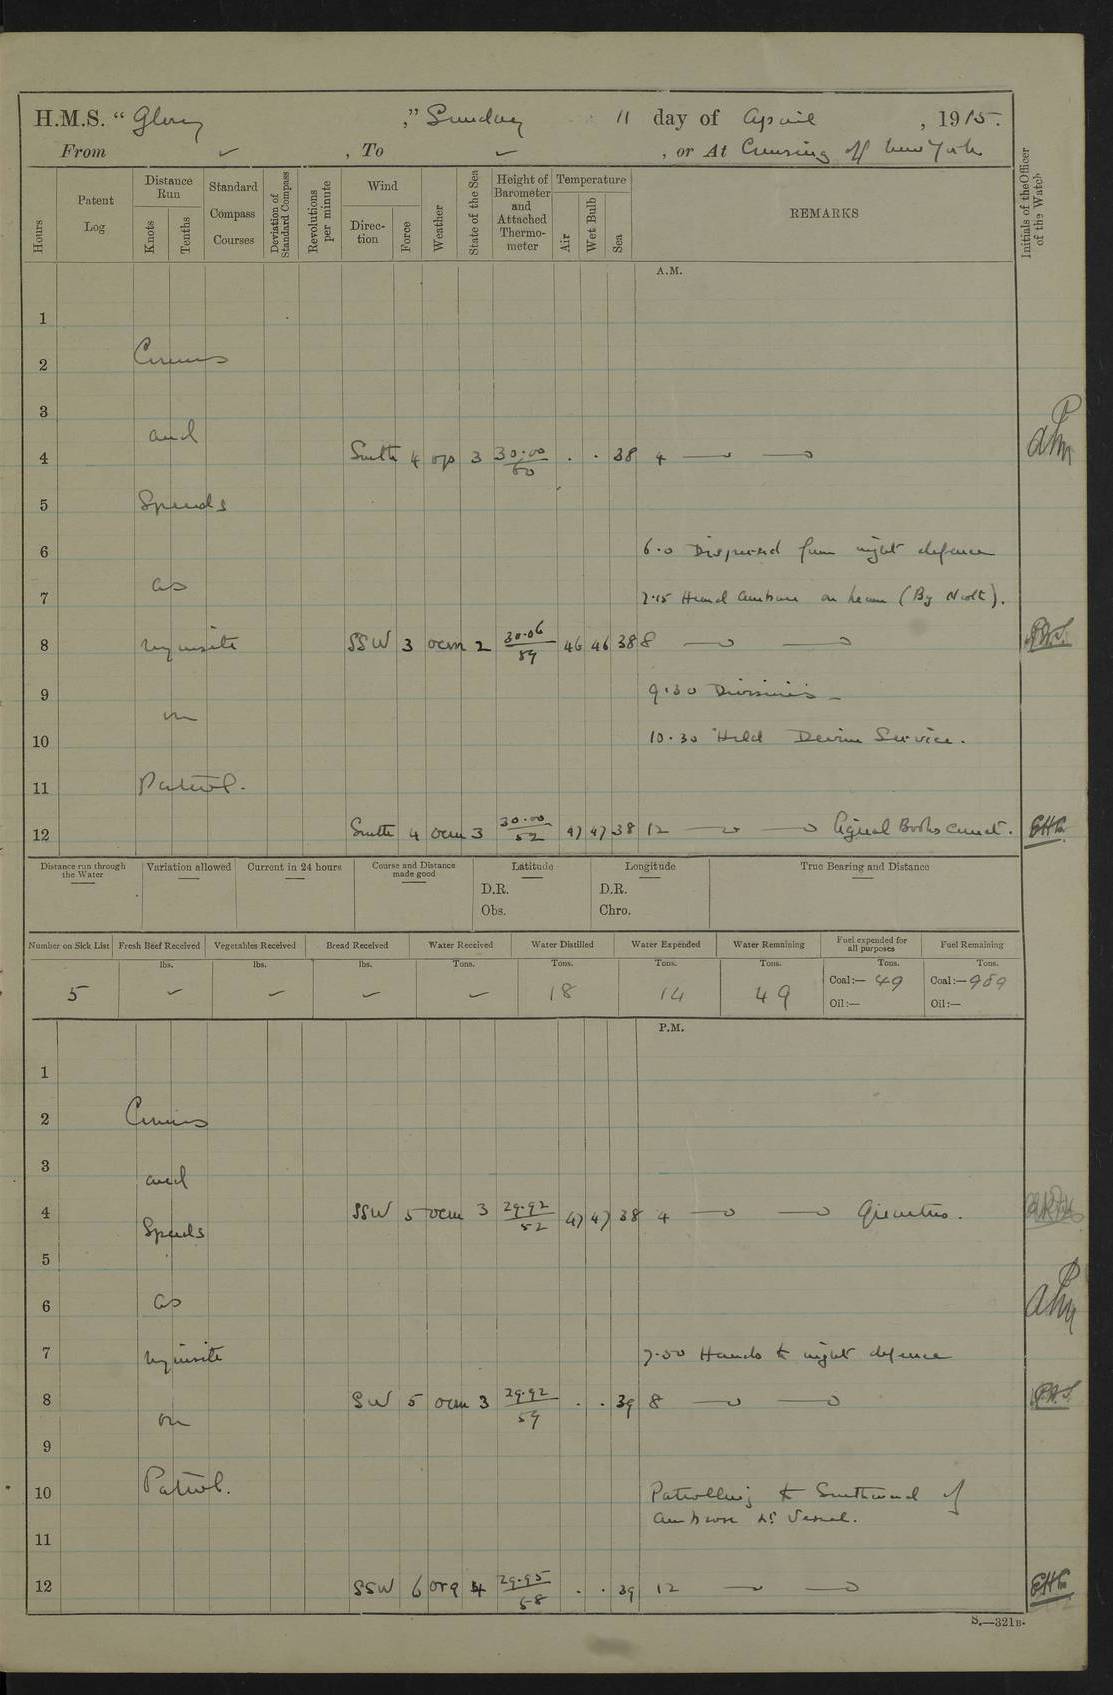 H.M.S. "Glory," Sunday 11 day of April, 1915.
From ✓, To ✓, or At Cruising off New York
Hours
Patent Log
Distance Run
Knots
Tenths
Standard Compass Courses
Deviation of Standard Compass
Revolutions per minute
Wind
Direc-tion
Force
Weather
State of the Sea
Height of Barometer and Attached Thermo-meter
Temperature
Air
Wet Bulb
Sea
REMARKS
Initials of the Officer of the Watch
A.M.
1
2 Courses
3
and
4 South 4 op 3 30.00/60 . . 38 4
5 Speeds
6 6.0 Dispersed from night defence
as
7 7.15 Heard Ambrose on beam (By Nlt).
8 requisite SSW 3 ocm 2 30.06/59 46 46 38 8
9 9.30 Divisions
on
10 10.30 Held Devine Service.
11 Patrol.
12 South 4 ocm 3 30.00/52 47 47 38 12 Signal Books correct. EHL
Distance run through the Water
Variation allowed
Current in 24 hours
Course and Distance made good
Latitude
D.R.
Obs.
Longitude
D.R.
Chro.
True Bearing and Distance
Number on Sick List
Fresh Beef Received
Vegetables Received
Bread Received
Water Received
Water Distilled
Water Expended
Water Remaining
Fuel expended for all purposes
Fuel Remaining
lbs. lbs. lbs. Tons. Tons. Tons. Tons. Tons. Tons.
5 ✓ ✓ ✓ ✓ 18 14 49 Coal:— 49 Coal:— 989
Oil:— Oil:—
P.M.
1
2 Courses
3
and
4 SSW 5 ocm 3 29.92/52 47 47 38 4 Quarters.
Speeds
5
6 as
7 requisite 7.50 Hands to night defence
8 SW 5 ocm 3 29.92/59 . . 39 8
on
9
10 Patrol. Patrolling to Southward of
Ambrose Lt Vessel.
11
12 SSW 6 orq 4 29.95/58 . . 39 12 EHL
S.—321B.